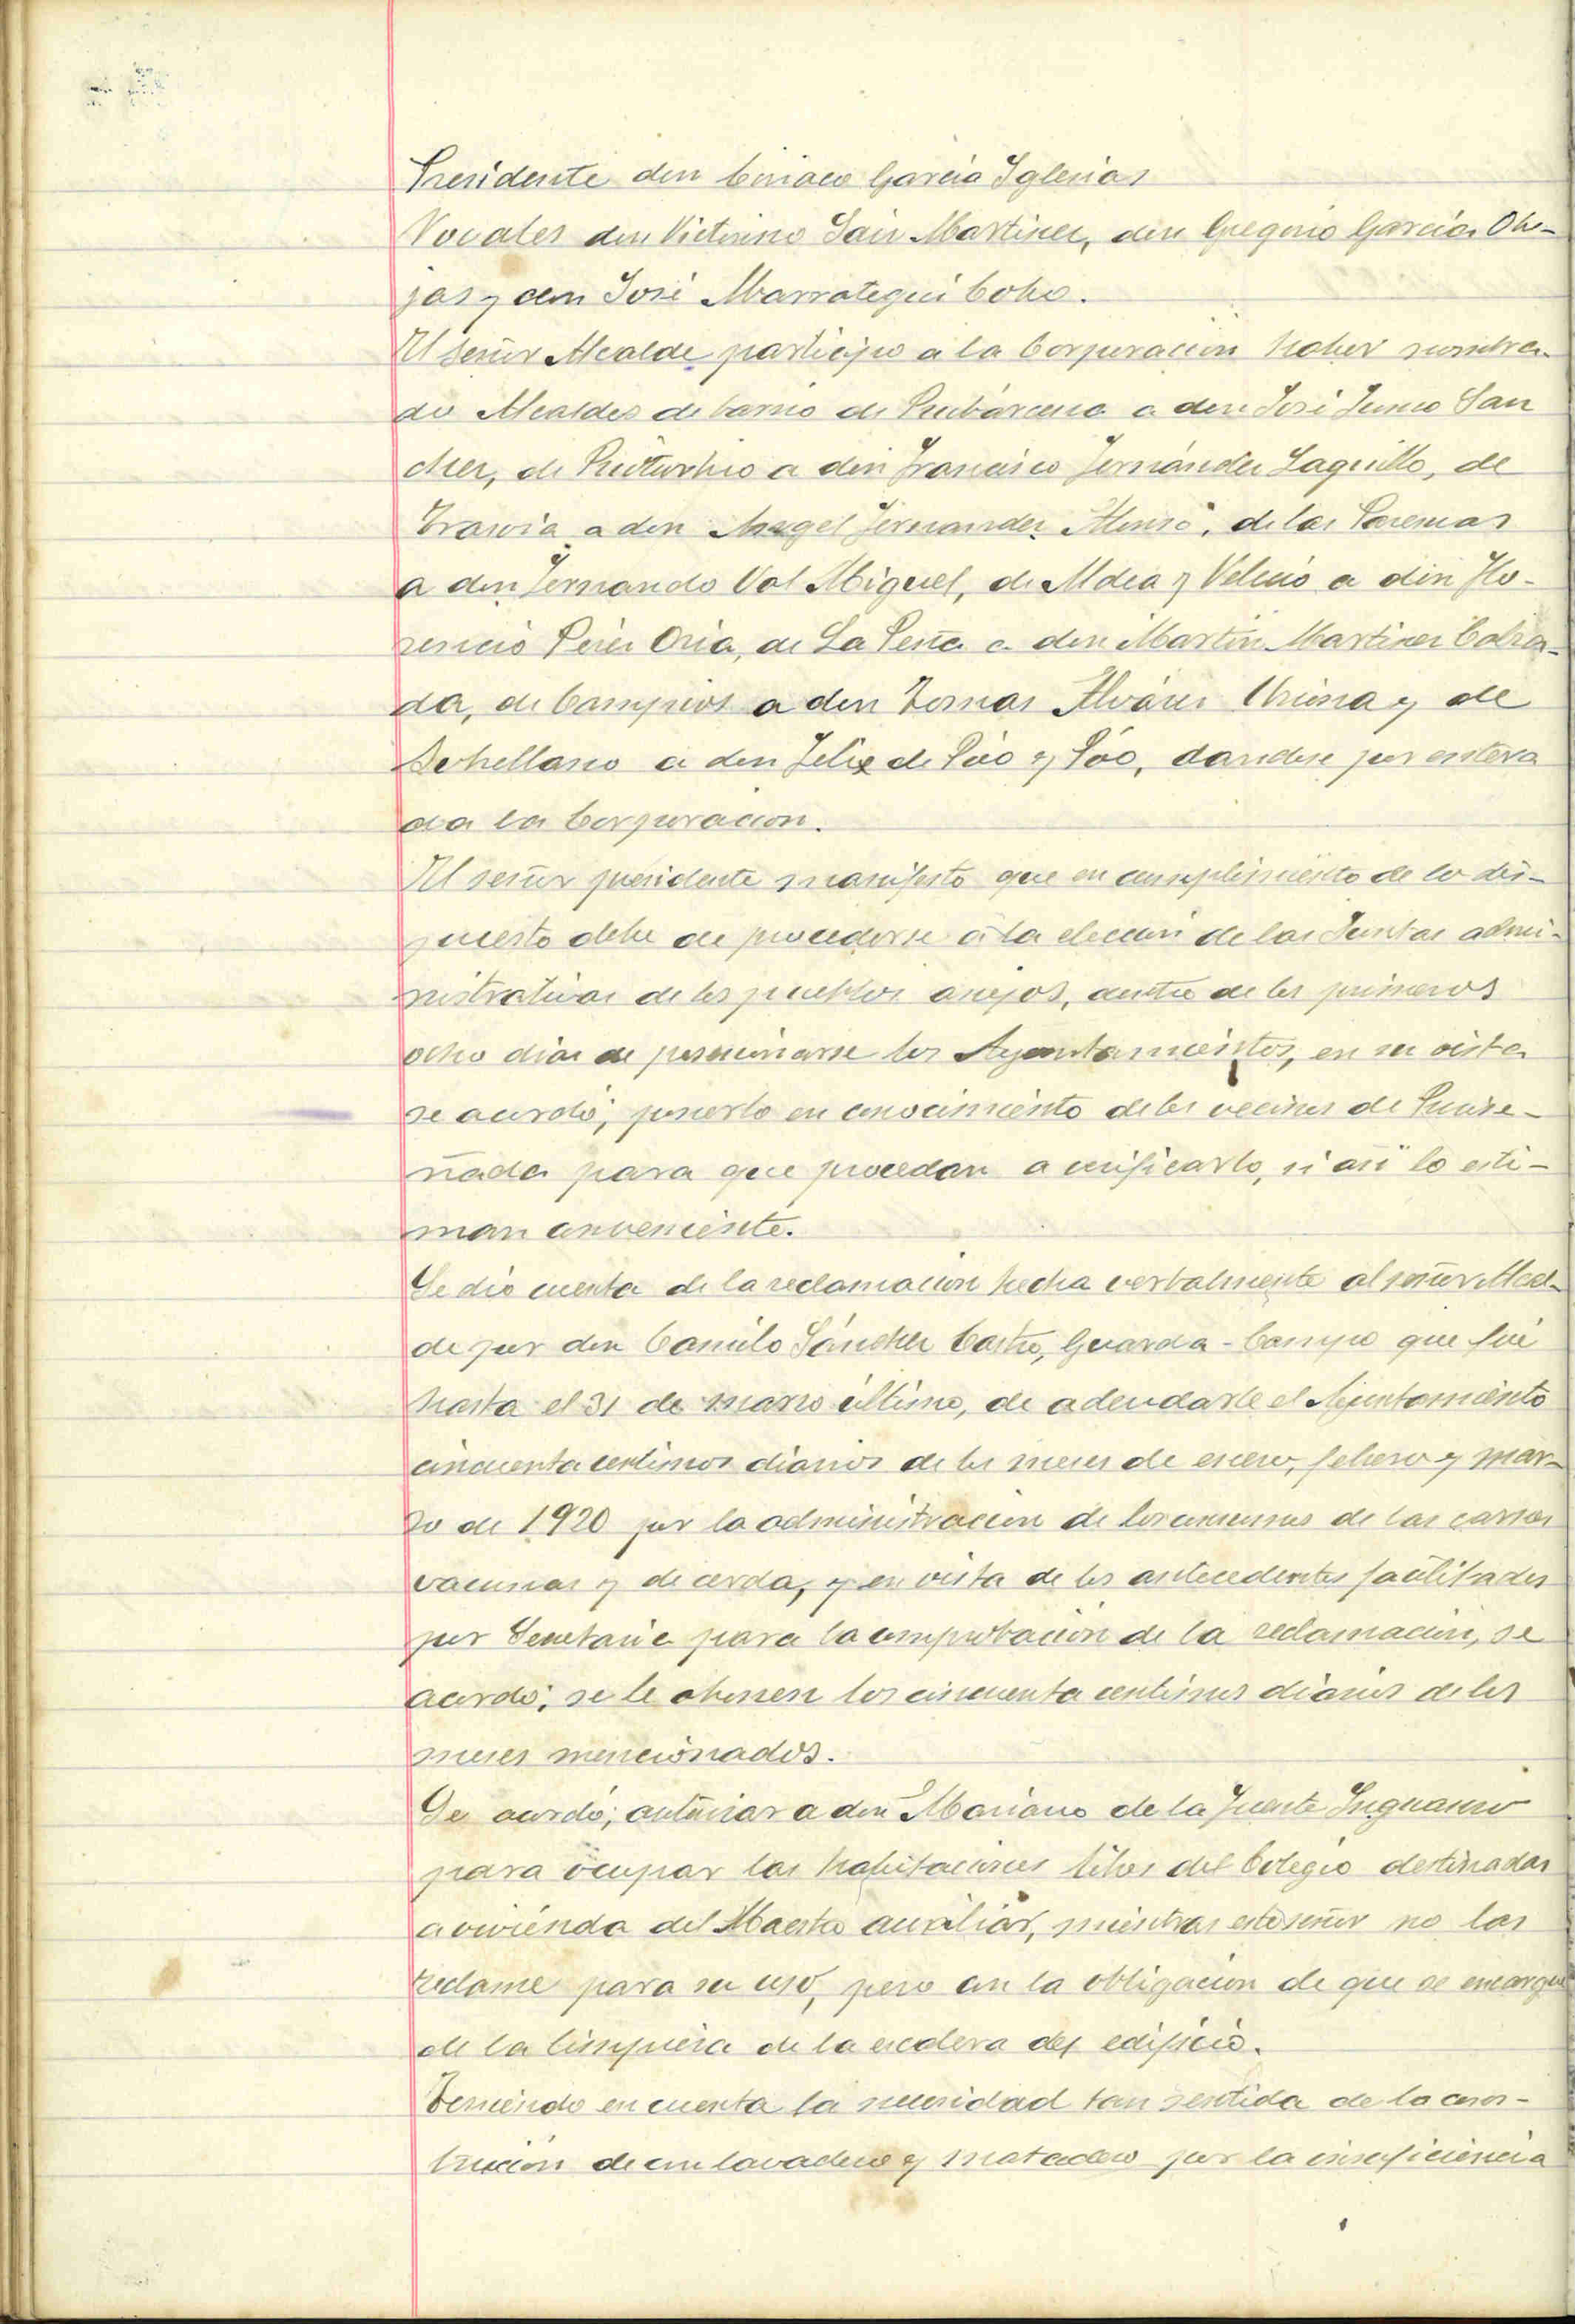 Presidente don Ciriaco García Iglesias
Vocales don Victorino Saiz Martinez, don Gregorio García Obe-
jas y don José Marrategui Cobo.
El señor Alcalde participó a la Corporación haber nombra-
do Alcaldes de barrio de a don José San
chez, de a don Francisco Fernández Laguillo, de
a don Angel Fernandez Alonso, de las
a don Fernando Val Miguel, de Aldea y a don Flo-
rencio Pérez Oria, de La Peña a don Martín Martinez Calza-
da, de Campios a don Tomas Alvárez y de
a don Felix de y dandose por entera
da la Corporación.
El señor presidente manifestó que en cumplimiento de lo dis-
puesto debe de procederse á la elección de las Juntas admi-
nistrativas de los pueblos anejos, dentro de los primeros
ocho dias de posesionarse los Ayuntamientos, en su vista
se acordó; ponerlo en conocimiento de los vecinos de
para que procedan a verificarlo, si así lo esti-
man conveniente.
Se dió cuenta de la reclamación hecha verbalmente al señor Alcal-
de por don Camilo Sánchez Castro, Guarda-Campo que fué
hasta el 31 de marzo último, de adeudarle el Ayuntamiento
cincuenta centimos diarios de los meses de enero, febrero y mar-
zo de 1920 por la administración de los consumos de las carnes
vacunas y de cerda, y en vista de los antecedentes facilitados
por Secretaría para la comprobación de la reclamación, se
acordó; se le abonen los cincuenta centimos diarios de los
meses mencionados.
Se acordó; autorizar a don Mariano de la Fuente
para ocupar las habitaciones libres del Colegio destinadas
a vivienda del Maestro auxiliar, mientras este señor no las
reclame para su uso, pero con la obligación de que se encargue
de la limpieza de la escalera del edificio.
Teniendo en cuenta la necesidad tan sentida de la cons-
trución de un lavadero y matadero por la insuficiencia